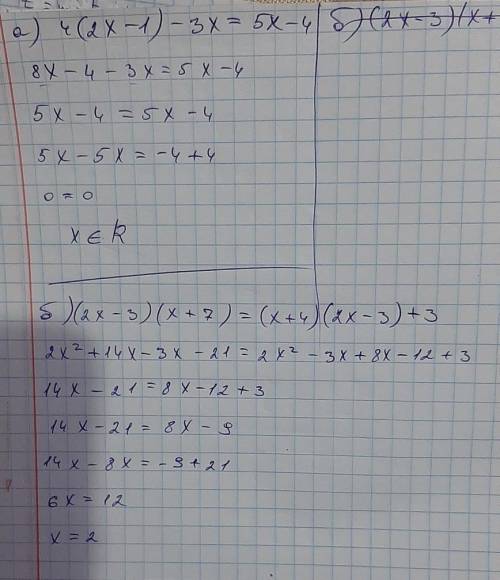 а) 4(2x-1)-3x=5x-4
8x-4-3x=5x-4
5x-4=5x-4
5x-5x=-4+4
0=0
x∈R
б) (2x-3)(x+
б) (2x-3)(x+7)=(x+4)(2x-3)+3
2x²+14x-3x-21=2x²-3x+8x-12+3
14x-21=8x-12+3
14x-21=8x-9
14x-8x=-9+21
6x=12
x=2